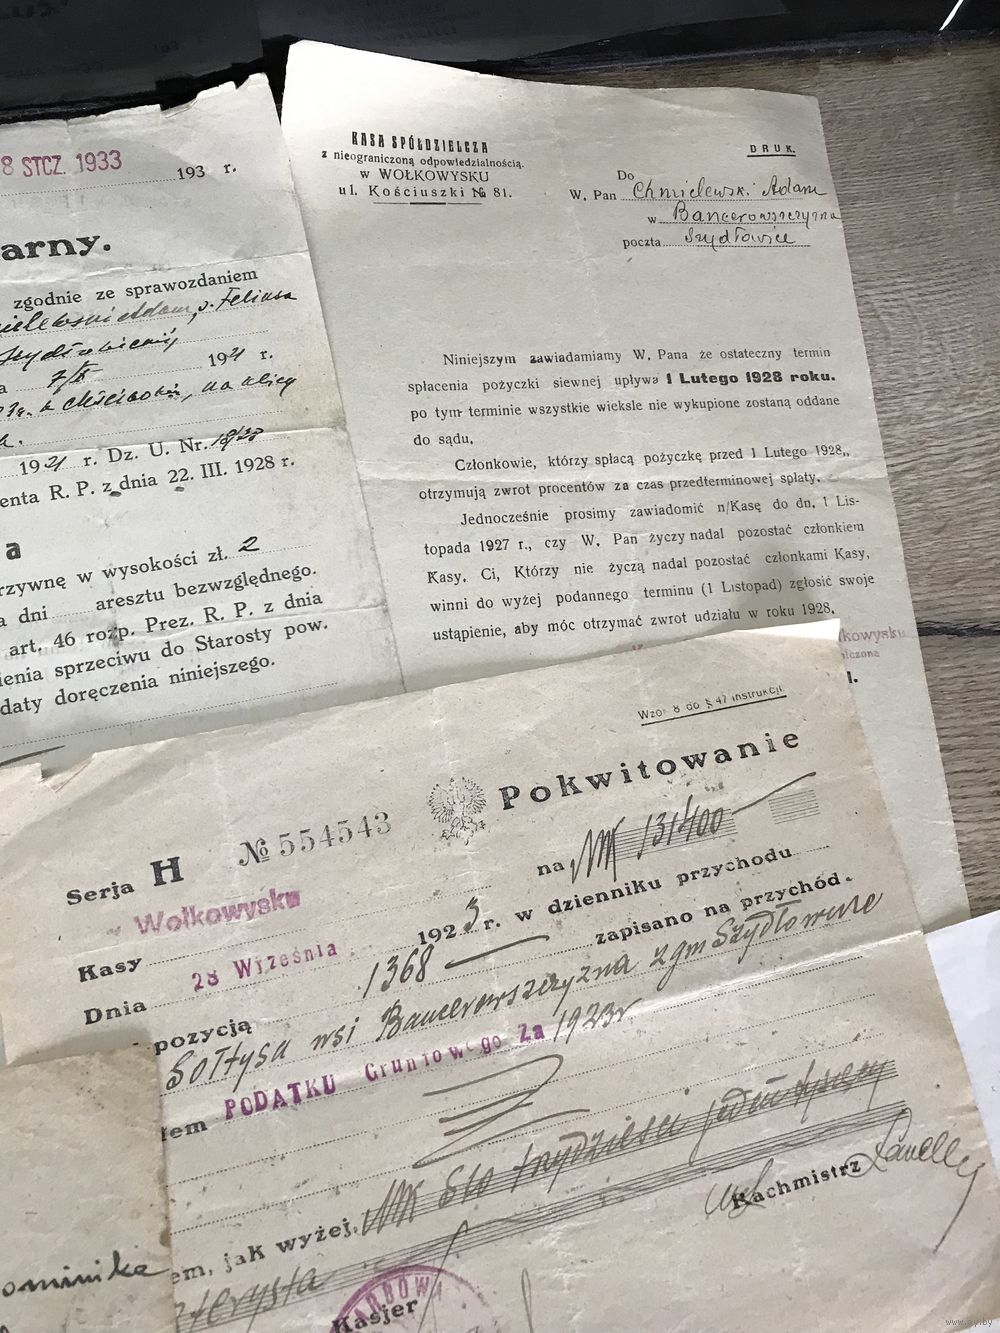 8 STCZ. 1933
193 r.
arny.
zgodnie ze sprawozdaniem
Adam, s. Feliksa
a 7/X 1931 r.
na ulicy
1931 r. Dz. U. Nr.
enta R. P. z dnia 22. III. 1928 r.
a
rzywnę w wysokości zł. 2
a dni aresztu bezwzględnego.
art. 46 rozp. Prez. R. P. z dnia
ienia sprzeciwu do Starosty pow.
daty doręczenia niniejszego.
KASA SPÓŁDZIELCZA
z nieograniczoną odpowiedzialnością.
w WOŁKOWYSKU
ul. Kościuszki № 81.
DRUK.
Do
W. Pan Chmielewski Adam
w Bancerowszczyzna
poczta Szydłowice
Niniejszym zawiadamiamy W. Pana że ostateczny termin
spłacenia pożyczki siewnej upływa 1 Lutego 1928 roku.
po tym terminie wszystkie wieksle nie wykupione zostaną oddane
do sądu.
Członkowie, którzy spłacą pożyczkę przed 1 Lutego 1928,,
otrzymują zwrot procentów za czas przedterminowej spłaty.
Jednocześnie prosimy zawiadomić n/Kasę do dn. 1 Lis-
topada 1927 r., czy W. Pan życzy nadal pozostać członkiem
Kasy. Ci, Którzy nie życzą nadal pozostać członkami Kasy,
winni do wyżej podannego terminu (1 Listopad) zgłosić swoje
ustąpienie, aby móc otrzymać zwrot udziału w roku 1928.
łkowysku
Wzór 8 do § 47 instrukcji.
Pokwitowanie
Serja H № 554543
na MK 131400
Kasy Wołkowysku
Dnia 28 Września 1923 r. w dzienniku przychodu
pozycją 1368 zapisano na przychód.
Sołtysa wsi Bancerowszczyzna z gm Szydłowice
łem PODATKU Gruntowego Za 1923 r
MK Sto trzydzieści jeden tysięcy
em, jak wyżej.
czterysta
Rachmistrz
SKARBOWA
Kasjer
ominika
www.ay.by